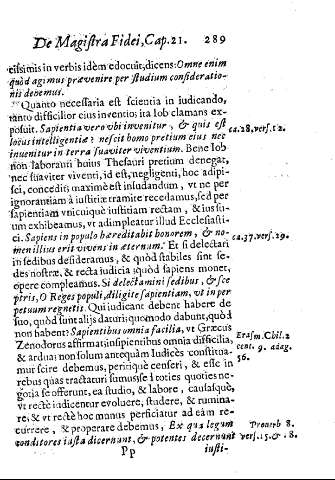 De Magistra Fidei, Cap. 21. 289
tissimis in verbis idèm edocuit, dicens: Omne enim
quod agimus prævenire per studium considerationis debemus.
Quanto necessaria est scientia in iudicando,
tanto difficilior eius inventio; ita Iob clamans exposuit.
Sapientia vero ubi invenitur, & quis est
locus intelligentiæ? nescit homo pretium eius nec
invenitur in terra suaviter viventium. Bene Iob
non laboranti huius Thesauri pretium denegat,
nec suaviter viventi, id est, negligenti, hoc adipisci,
concedit; maximè est insudandum, vt ne per
ignorantiam à iustitiæ tramite recedamus, sed per
sapientiam vnicuique iustitiam rectam, & ius suum
exhibeamus, vt adimpleatur illud Ecclesiastici.
Sapiens in populo hæreditabit honorem, & nomen
illius erit vivens in æternum. Et si delectari
in sedibus desideramus, & quòd stabiles sint sedes
nostræ, & recta iudicia; quòd sapiens monet,
opere compleamus. Si delectamini sedibus, & sceptris,
O Reges populi, diligite sapientiam, vt in perpetuum
regnetis. Qui iudicant debent habere de
suo, quòd sunt aliis daturi; quomodo dabunt, quòd
non habent? Sapientibus omnia facilia, vt Græcus
Zenodorus affirmat; insipientibus omnia difficilia,
& ardua; non solum antequàm Iudices constituamur
scire debemus, peritique censeri, & esse in
rebus quas tractaturi sumus; sed toties quoties negotia
se offerunt, ea studio, & labore, causasque,
vt rectè iudicentur evoluere, studere, & ruminare,
& vt rectè hoc munus perficiatur ad eam recurrere,
& properare debemus, Ex qua legum
conditores iusta dicernunt, & potentes decernunt
Pp iusti-
ca.28.vers.12.
ca.37.vers.29.
Erasm. Chil. 2
cent. 9. adag.
56.
Prouerb 8.
vers. 15. & 8.